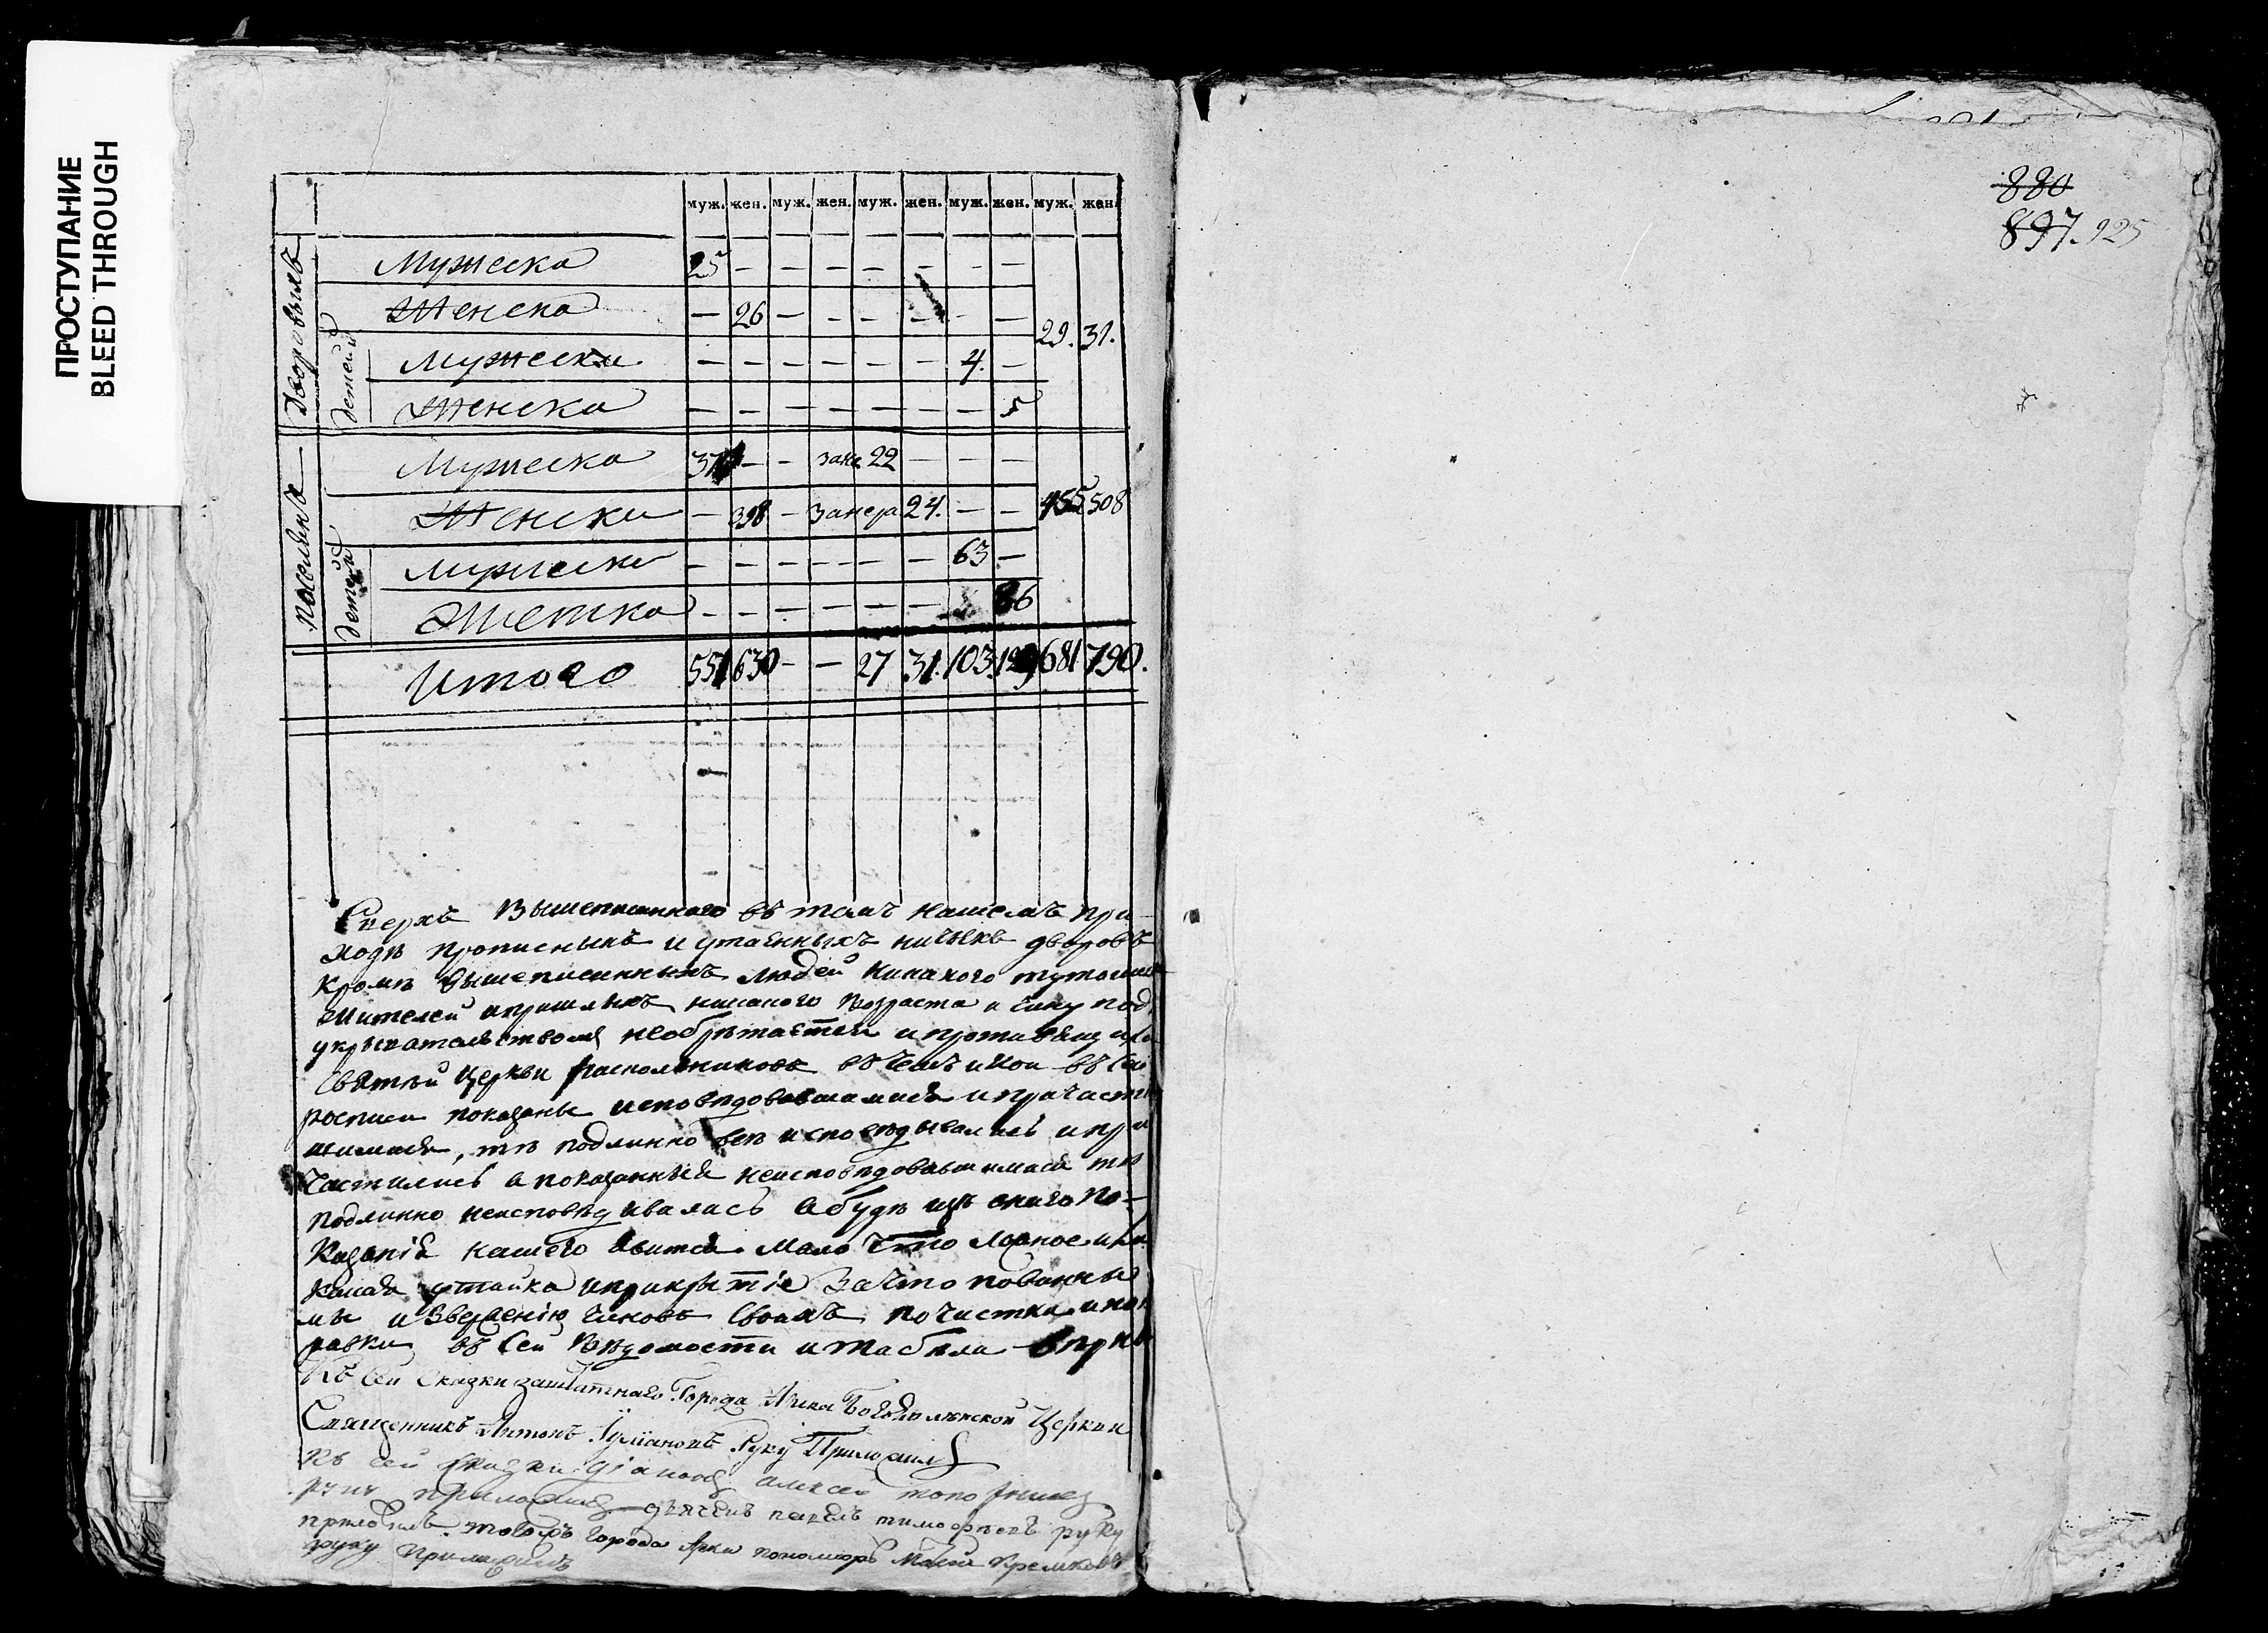 ПРОСТУПАНИЕ
BLEED THROUGH
муж. жен. муж. жен. муж. жен. муж. жен. муж. жен.
Дворовыхъ
Мужеска 25 — — — — — — —
Женска — 26 — — — — — —
29. 31.
детей
Мужеска — — — — — — 4. —
Женска — — — — — — — 5
Мужеска — — 22 — — —
Женска — 398 — 24. — —
455 508
детей
Мужеска — — — — — — 63 —
Женска — — — — — — 86
Итого 551 630 — — 27 31. 103. 129 681 790.
Сверхъ вышеписаннаго въ томъ нашемъ при-
ходѣ прописныхъ и утаенныхъ ничьихъ дворовъ
кромѣ вышеписанныхъ людей никакого
жителей и пришлыхъ никакого возраста и чину под
укрывательствомъ необрѣтается и
Святѣй Церкви раскольниковъ въ чемъ и кои въ сей
росписи показаны исповѣдовавшимися и причасти
шимися, тѣ подлинно всѣ исповѣдывались и при
частились а показанныя неисповѣдовавшимися тѣ
подлинно неисповѣдивались а будѣ изъ онаго по-
казанія нашего явится мало что ложное
какая утайка и прикрытіе за что повинны
мы извержению чиновъ своихъ почистки и поп
равки въ сей вѣдомости и табели
Къ сей скаски заштатнаго Города Арска Богоявленской Церкви
Священникъ Антонъ Руку Приложилъ
Къ сей скаски діаконъ алексей
руку приложилъ дьячекъ павелъ тимофѣевъ руку
приложилъ тогожъ города Арска пономарь
руку приложилъ
880
897. 925